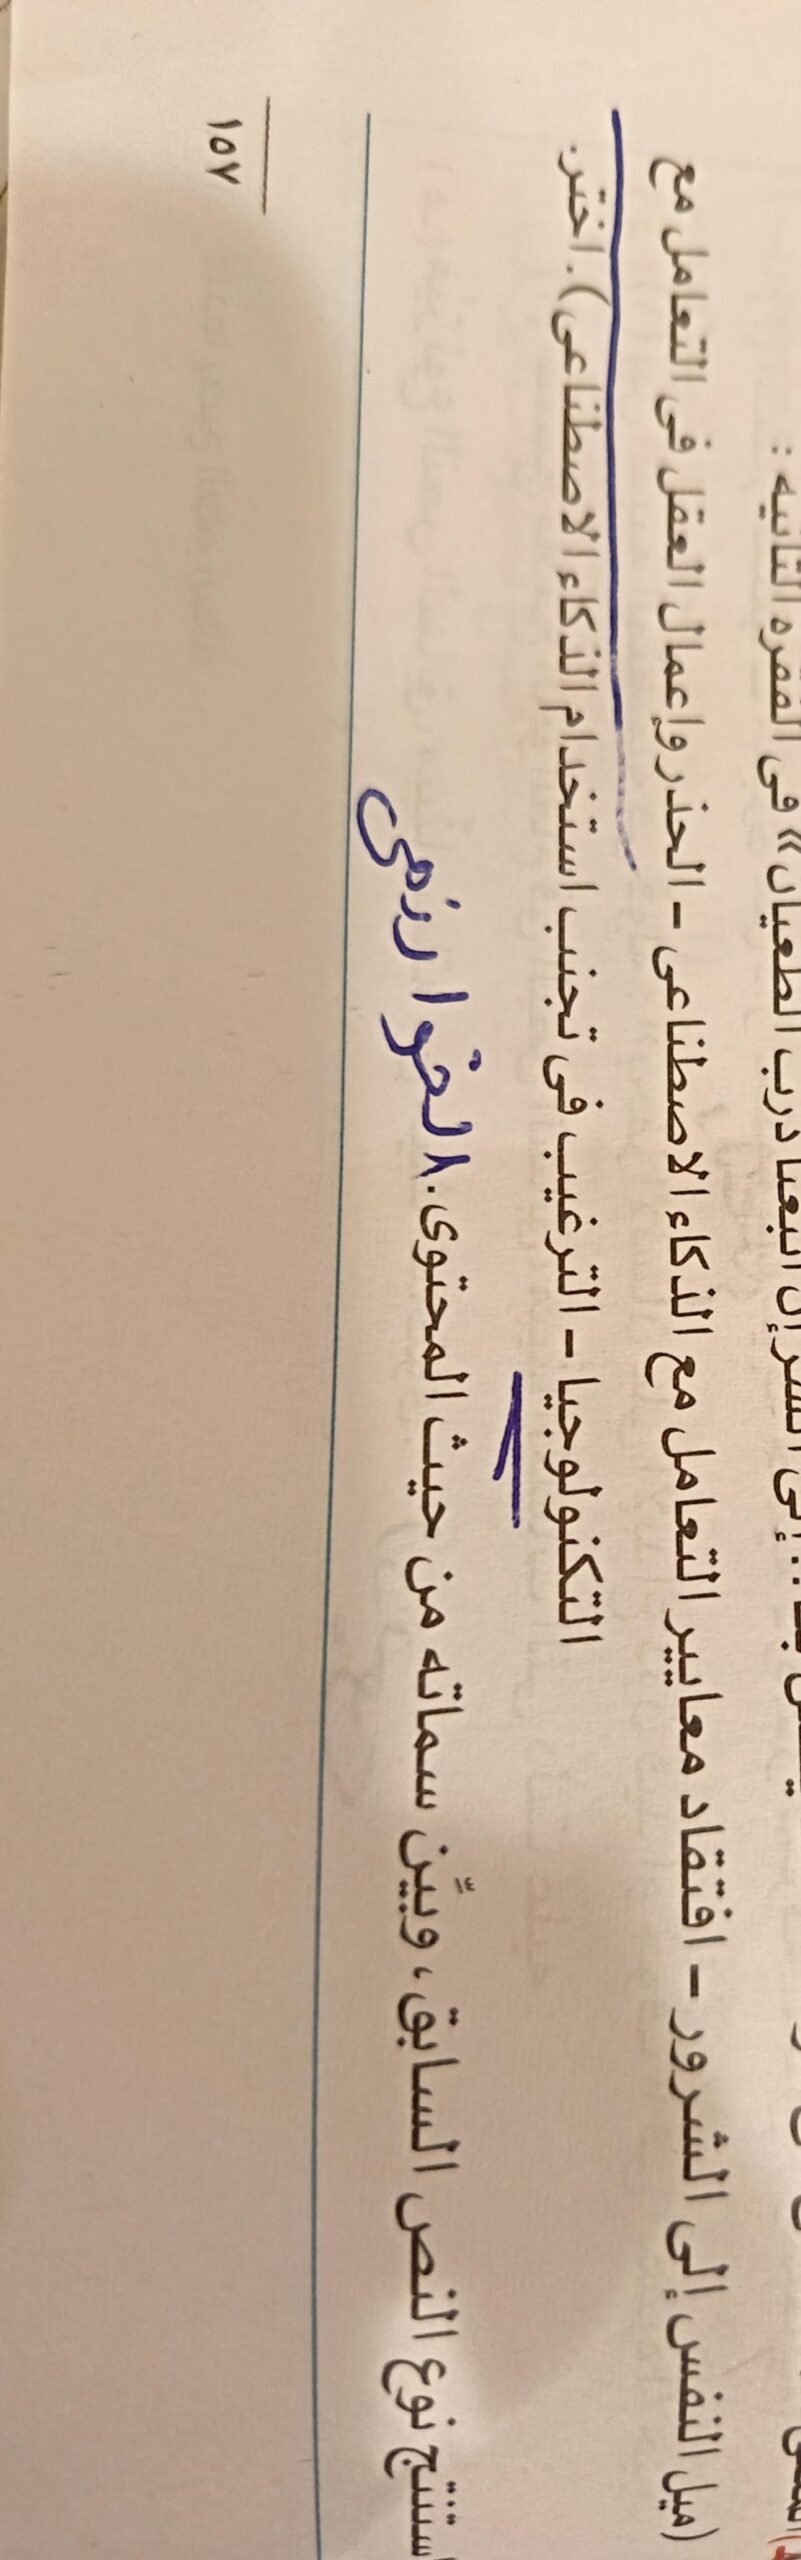 الفقرة الثانية :
(ميل النفس إلى الشرور - افتقاد معايير التعامل مع الذكاء الاصطناعى - الحذر وإعمال العقل فى التعامل مع
التكنولوجيا - الترغيب فى تجنب استخدام الذكاء الاصطناعى). اختر.
استنتج نوع النص السابق، وبيِّن سماته من حيث المحتوى. الخوارزمى
١٥٧